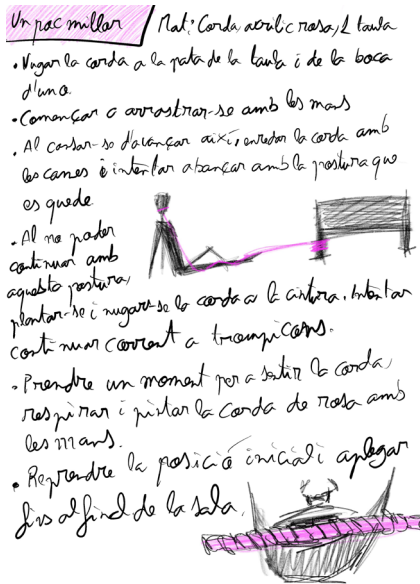 Un poc millor
Mat: Corda, acrílic rosa, 1 taula
• Nugar la corda a la pata de la taula i de la boca
d'una
• Començar a arrastrar-se amb les mans
• Al cansar-se d'avançar així, enredar la corda amb
les cames i intentar abançar amb la postura que
es quede
• Al no poder
continuar amb
aquesta postura,
plantar-se i nugar-se la corda a la cintura. Intentar
continuar corrent a trompicons.
• Prendre un moment per a sentir la corda,
respirar i pintar la corda de rosa amb
les mans.
• Reprendre la posició inicial i aplegar
fins al final de la sala.